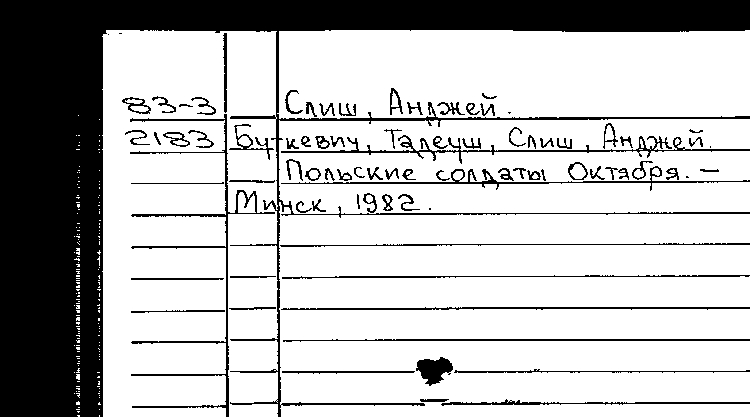 83-3 Слиш, Анджей.
2183 Буткевич, Тадеуш, Слиш, Анджей.
Польские солдаты Октября. –
Минск, 1982.